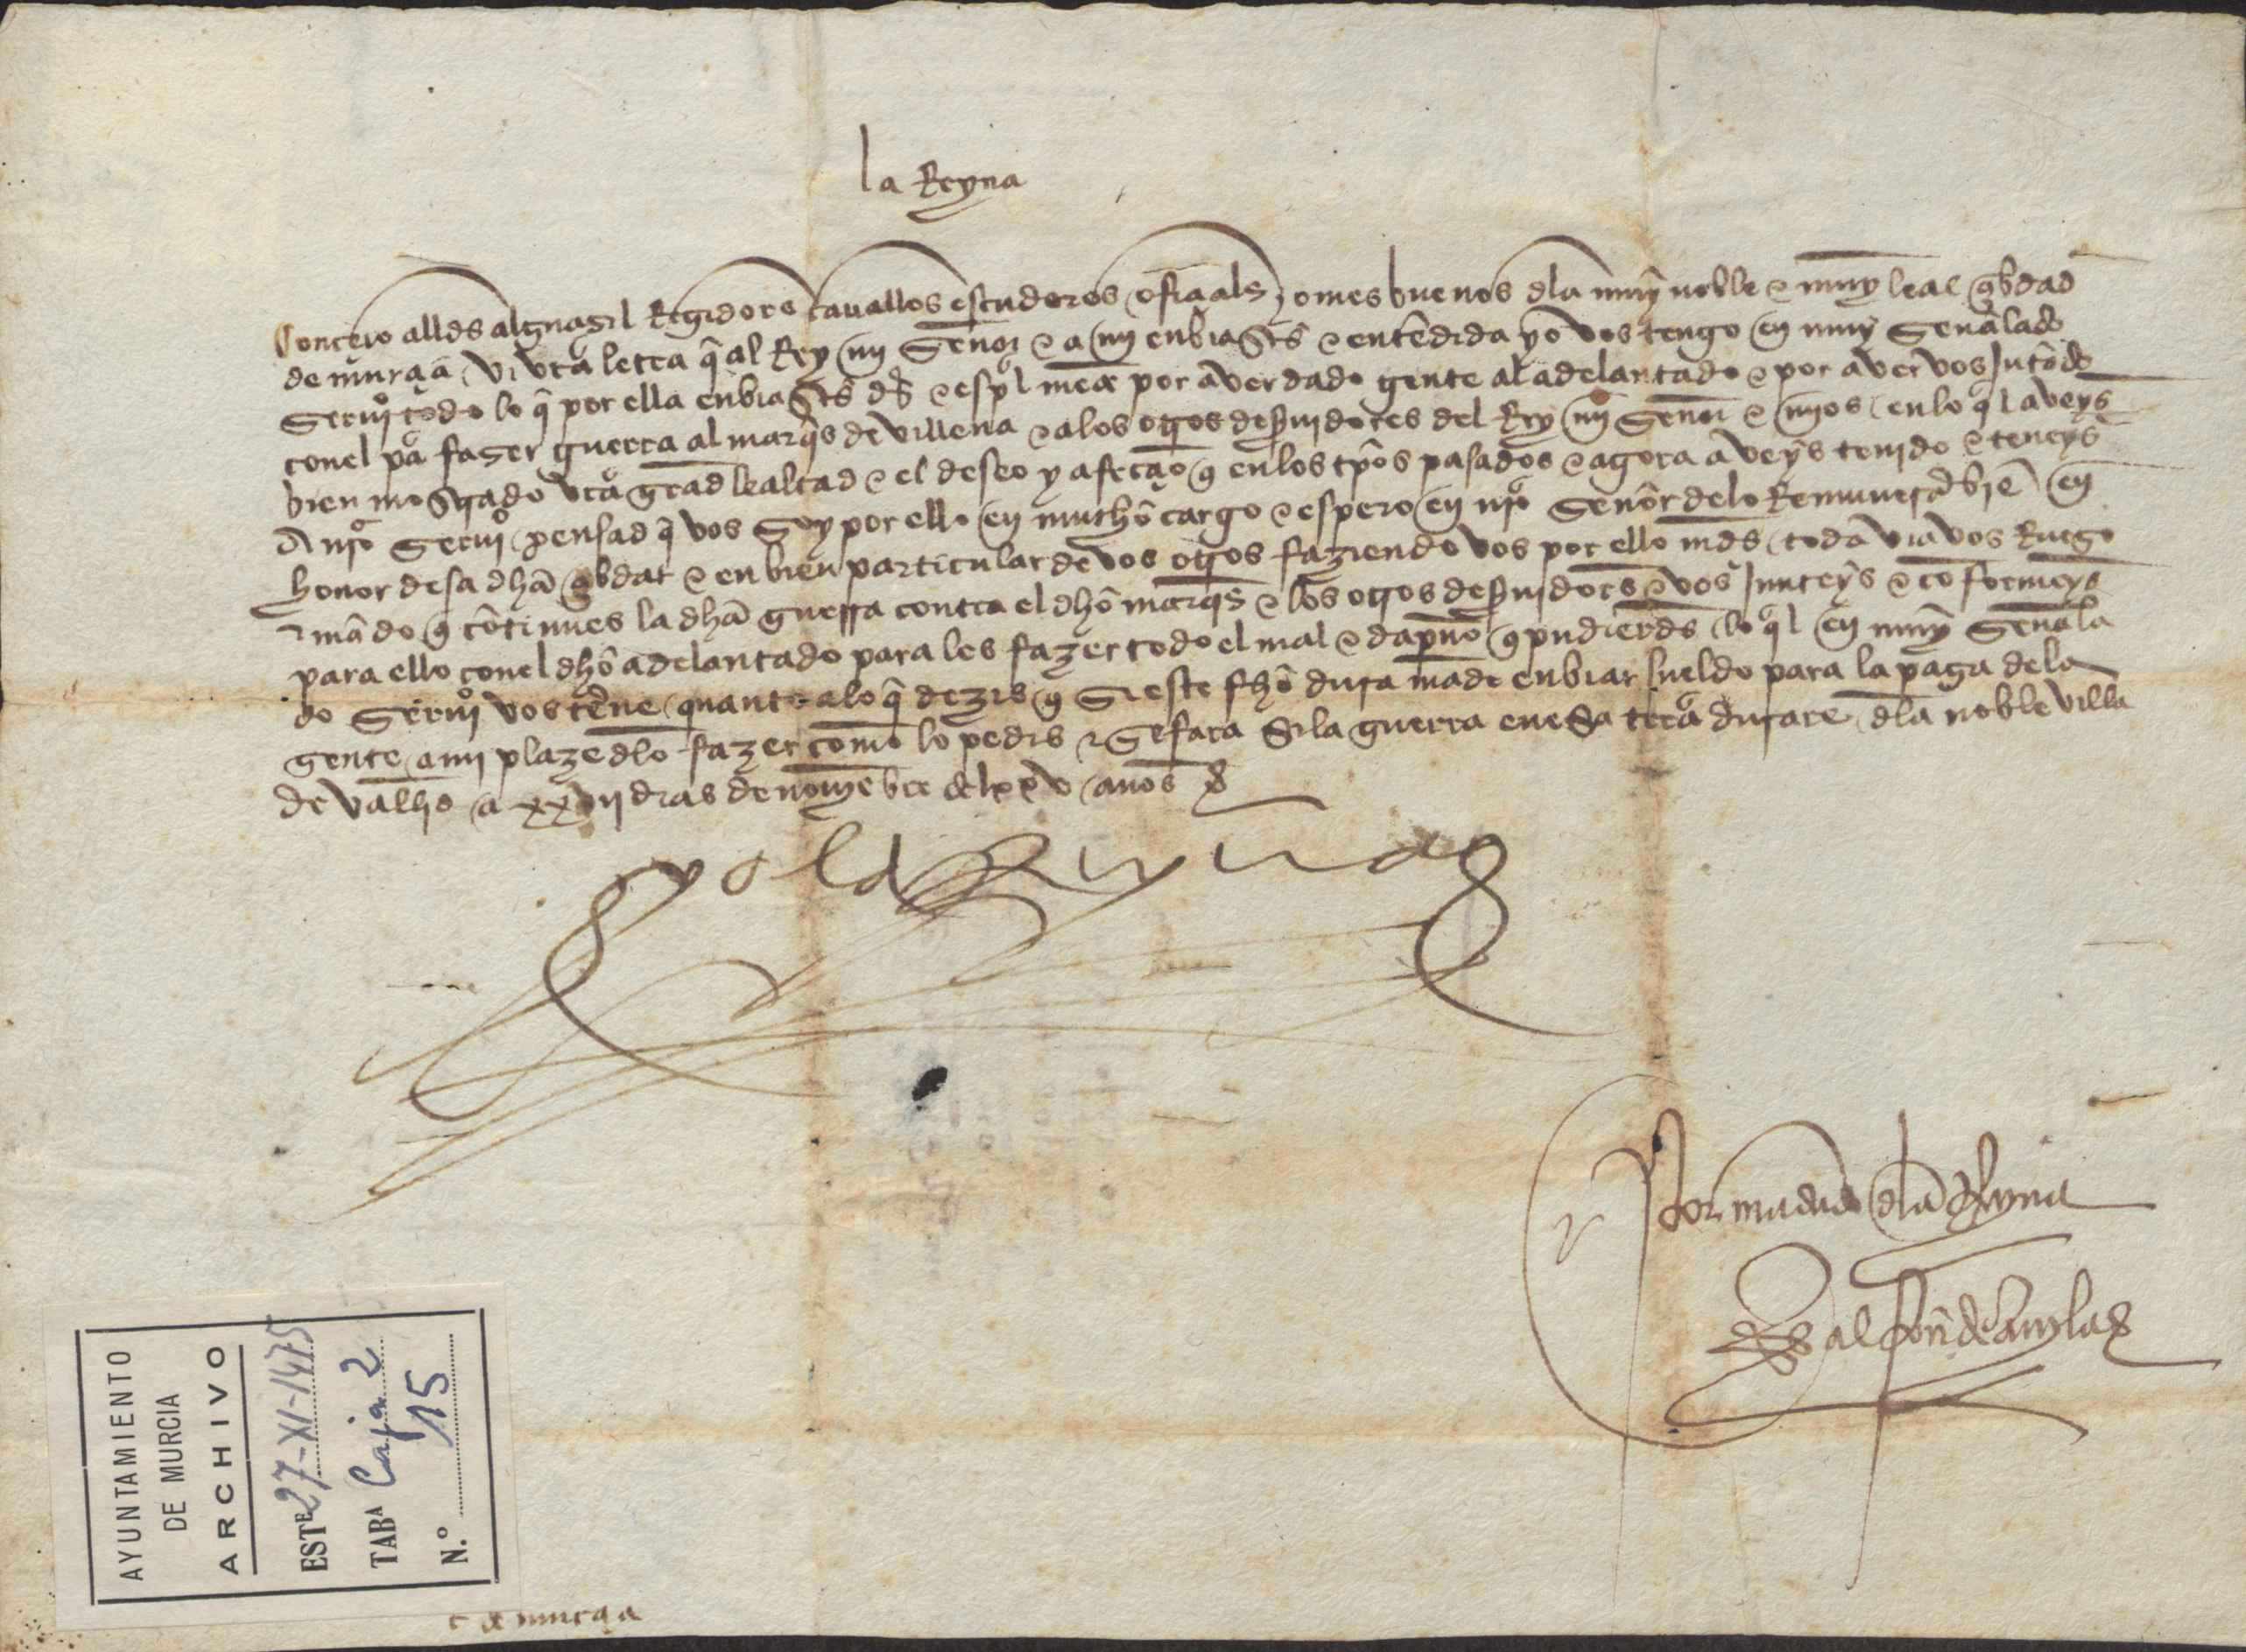 la Reyna
Concejo allds alguasil Regidores cavallos escuderos ofiçiales y omes buenos dla muy noble e muy leal çibdad
de murçia vi vra letra q al Rey mi Señor e a mi enbiastes e entẽdida yo vos tengo en muy Señalado
Servi° todo lo q por ella enbiastes ds e espl mente por aver dado gente al adelantado e por avervos Jutado
conel pa faser guerra al marqs de villena e alos otros deservidores del Rey mi Señor e mios en lo ql aveys
bien mostrado vra grad lealtad e el deseo y afeçio q en los tpos pasados e agora aveys tenido e teneys
A nro Servi° pensad q vos Soy por ello en mucho cargo e espero en nro Señor delo Remunerar biẽ en
honor desa dha çibdat e en bien particular de vos otros faziendo vos por ello mds toda via vos Ruego
e mãdo q cõtinues la dha guerra contra el dho marqs e los otros deservidores e vos Junteys e cõformeys
para ello conel dho adelantado para les fazer todo el mal e dapno q pudierds lo ql en muy Señala
do Servi° vos terne quanto alo q dezis q si este fho dura mãde enbiar sueldo para la paga dela
gente a mi plaze dlo fazer como lo pedis e Se fara Si la guerra en esa trra durare dla noble villa
de vallid a xxvii dias de novyẽbre de lxxv años
yo la Reyna
Por mãdado dla Reyna
alfon de avila
AYUNTAMIENTO
DE MURCIA
ARCHIVO
ESTE 27-XI-1475
TABA Caja 2
N.º 15
murçia